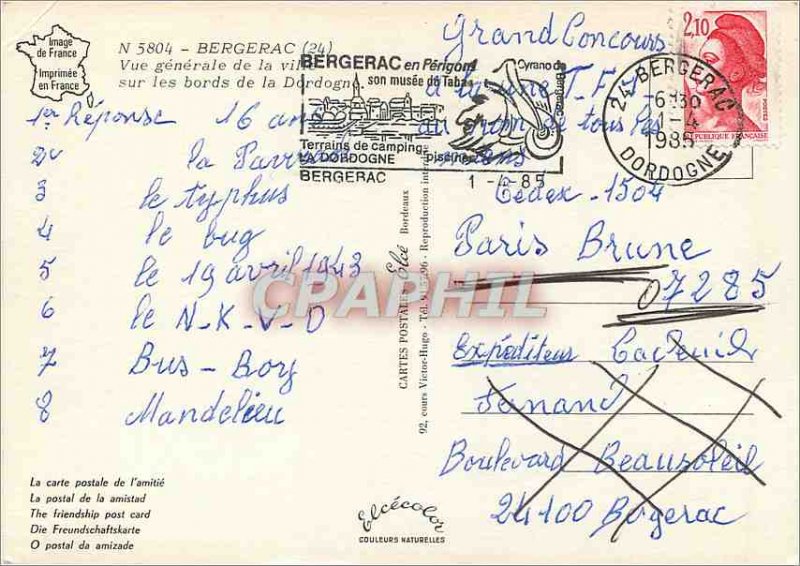 Image
de France
Imprimée
en France
N 5804 - BERGERAC (24)
Vue générale de la
sur les bords de la Dordogne
BERGERAC en Périgord
son musée du Tabac
Cyrano de Bergerac
Terrains de camping
LA DORDOGNE
piscine
BERGERAC
1-4-85
24 BERGERAC
1-4
1985
DORDOGNE
2,10
POSTES
REPUBLIQUE FRANÇAISE
1er Réponse 16 ans
2 la
3 le typhus
4 le bug
5 le 19 avril 1943
6 le N-K-V-D
7 Bus-Bog
8 Mandelieu
La carte postale de l'amitié
La postal de la amistad
The friendship post card
Die Freundschaftskarte
O postal da amizade
CARTES POSTALES Elcé Bordeaux
92, cours Victor-Hugo - Tél. 91 - Reproduction interdite
Elcécolor
COULEURS NATURELLES
Grand Concours
T.F.1
de tous les
Cedex-1504
Paris Brune
07285
Expéditeur
Fernand
Boulevard Beausoleil
24100 Bergerac
CPAPHIL